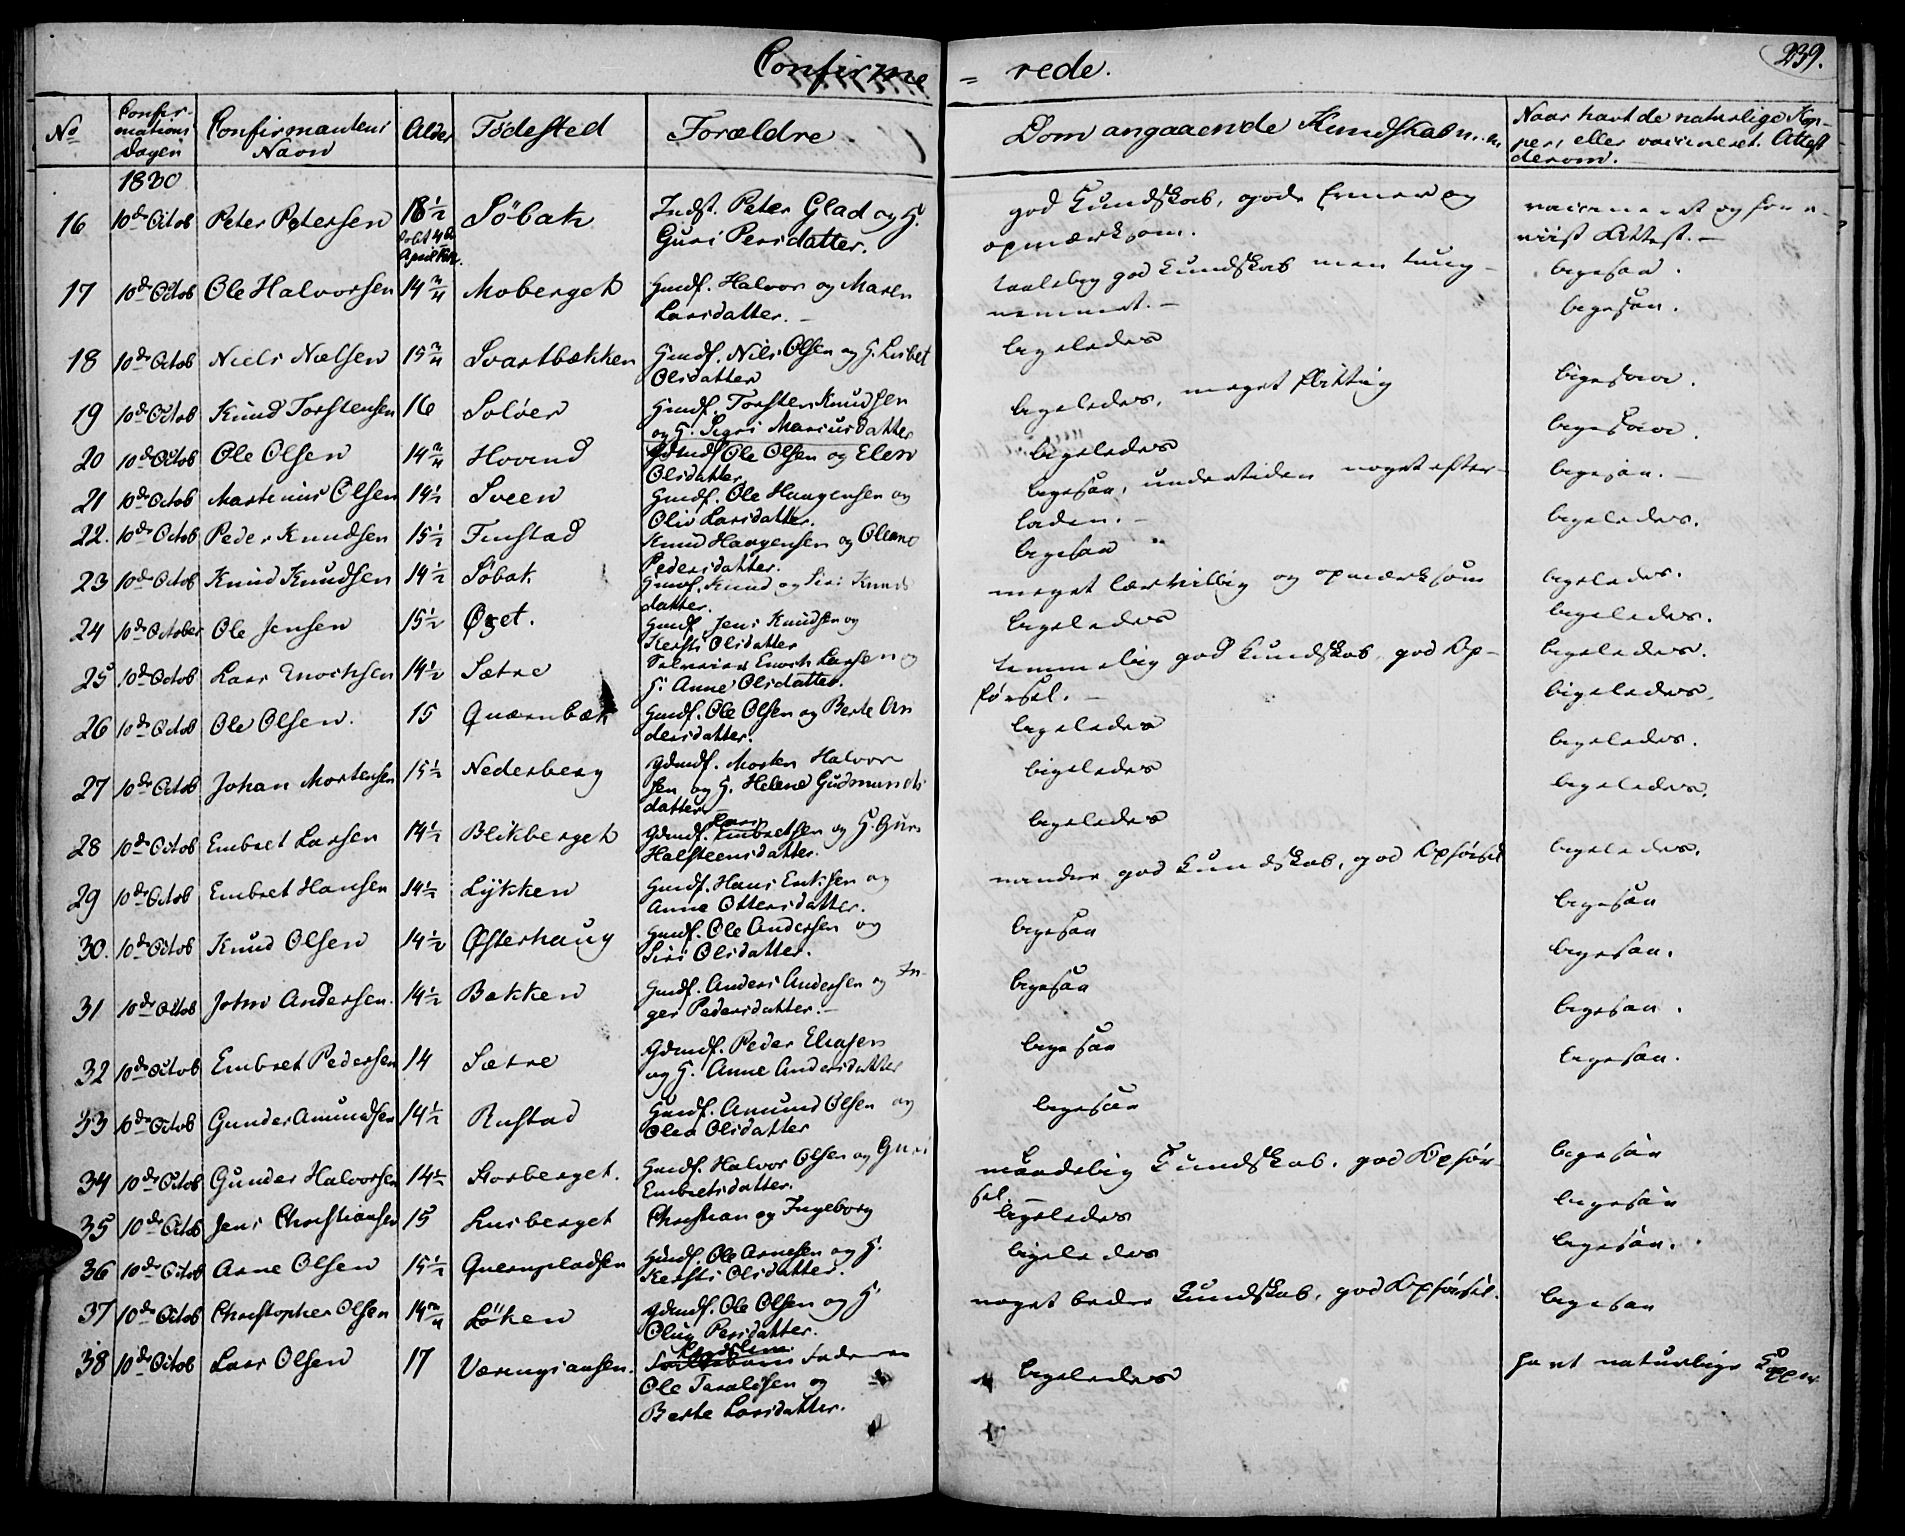 Confirme = rede.
239.
No
Confir-
mations
Dagen
Confirmantens
Navn
Alder
Födested
Forældre
Dom angaaende Kundskab m. m.
Naar havt de naturlige Kop-
per, eller vaccineret. Attest
derom.
1830
16 10de Octob Peter Petersen 18½ Söbak Indst. Peter Glad og H.
Guri Persdatter.
god Kundskab, gode Evner og
opmærksom.
vaccineret og frem-
viist Attest.-
17 10de Octob Ole Halvorsen 14 3/4 Moberget Huusf. Halvor og Maren
Larsdatter.-
taalelig god Kundskab men tung-
nemmet.-
ligesaa.
ligesaa.
18 10de Octob Niels Nielsen 15 3/4 Svartbækken Huusf. Nils Olsen og H. Lisbet
Olsdatter
ligeledes
ligesaa.
19 10de Octob Knud Torstensen 16 Solöer Huusf. Torsten Knudsen
og H. Sigri Mariusdatter
ligeledes, meget flittig
ligesaa.
20 10de Octob Ole Olsen 14 3/4 Hovind Gdmdf. Ole Olsen og Elen
Olsdatter
ligeledes
ligesaa.-
21 10de Octob Martinius Olsen 14½ Sveen Huusf. Ole Haagensen og
Oliv Larsdatter.
ligesaa, undertiden noget efter-
laden.-
ligeledes.
22. 10de Octob Peder Knudsen 15½ Finstad Knud Haagensen og Oleana
Pedersdatter.
ligesaa
23 10de Octob Knud Knudsen 14½ Söbak Huusf. Knud og Siri Knuds
datter.
meget lærvillig og opmærksom
ligeledes.
24 10de October Ole Jensen 15½ Øget. Huusf. Jens Knudsen og
Kersti Olsdatter
ligeledes
ligeledes.
25 10de Octob Lars Enochsen 14½ Sætre Selveier Enoch Larsen og
H. Anne Olsdatter.
temmelig god Kundskab, god Op-
försel.-
ligeledes.
26 10de Octob Ole Olsen. 15 Quærnbæk Huusf. Ole Olsen og Berte An
dersdatter.
ligeledes
ligeledes.
27 10de Octob Johan Mortensen 15½ Nederberg Gdmdf. Morten Halvor
sen og H. Helene Gudmunds
datter
ligeledes
ligeledes.
28 10de Octob Embret Larsen 14½ Blikberget Gdmdf. Lars Embretsen og H. Guri
Halsteensdatter.
ligeledes
ligeledes.
29 10de Octob Embret Hansen 14½ Lykken Huusf. Hans Eriksen og
Anne Ottersdatter.
mindre god Kundskab, god Opførsel
ligeledes.
30. 10de Octob Knud Olsen 14½ Østerhaug Huusf. Ole Andersen og
Siri Olsdatter.
ligesaa
ligesaa
31 10de Octob John Andersen. 14½ Bakken Huusf. Anders Andersen og In-
ger Pedersdatter.-
ligesaa
ligesaa.
32 10de Octob Embret Pedersen 14 Sætre Gdmdf. Peder Eliasen
og H. Anne Andersdatter
ligesaa
ligesaa.
33 10de Octob Gunder Amundsen 14½ Rustad Huusf. Amund Olsen og
Olea Olsdatter
ligesaa
ligesaa.
34 10de Octob Gunder Halvorsen 14½ Storberget. Huusf. Halvor Olsen og Guri
Embretsdatter.
maadelig Kundskab, god Opfør-
sel.
ligesaa
35 10de Octob Jens Christiansen 15 Lusberget Christian og Ingeborg
ligeledes
ligesaa
36 10de Octob Arne Olsen 15½ Quernpladsen Huusf. Ole Arnesen og H.
Kersti Olsdatter.
ligeledes
ligesaa.
37 10de Octob Christopher Olsen 14 3/4 Löken Gdmdf. Ole Olsen og H.
Oliug Persdatter.
noget bedre Kundskab, god Opførsel.
ligesaa
38 10de Octob Lars Olsen 17 Væringsaasen. Faderen
Ole Taraldsen og
Berte Larsdatter.
ligeledes
havt naturlige Kopper